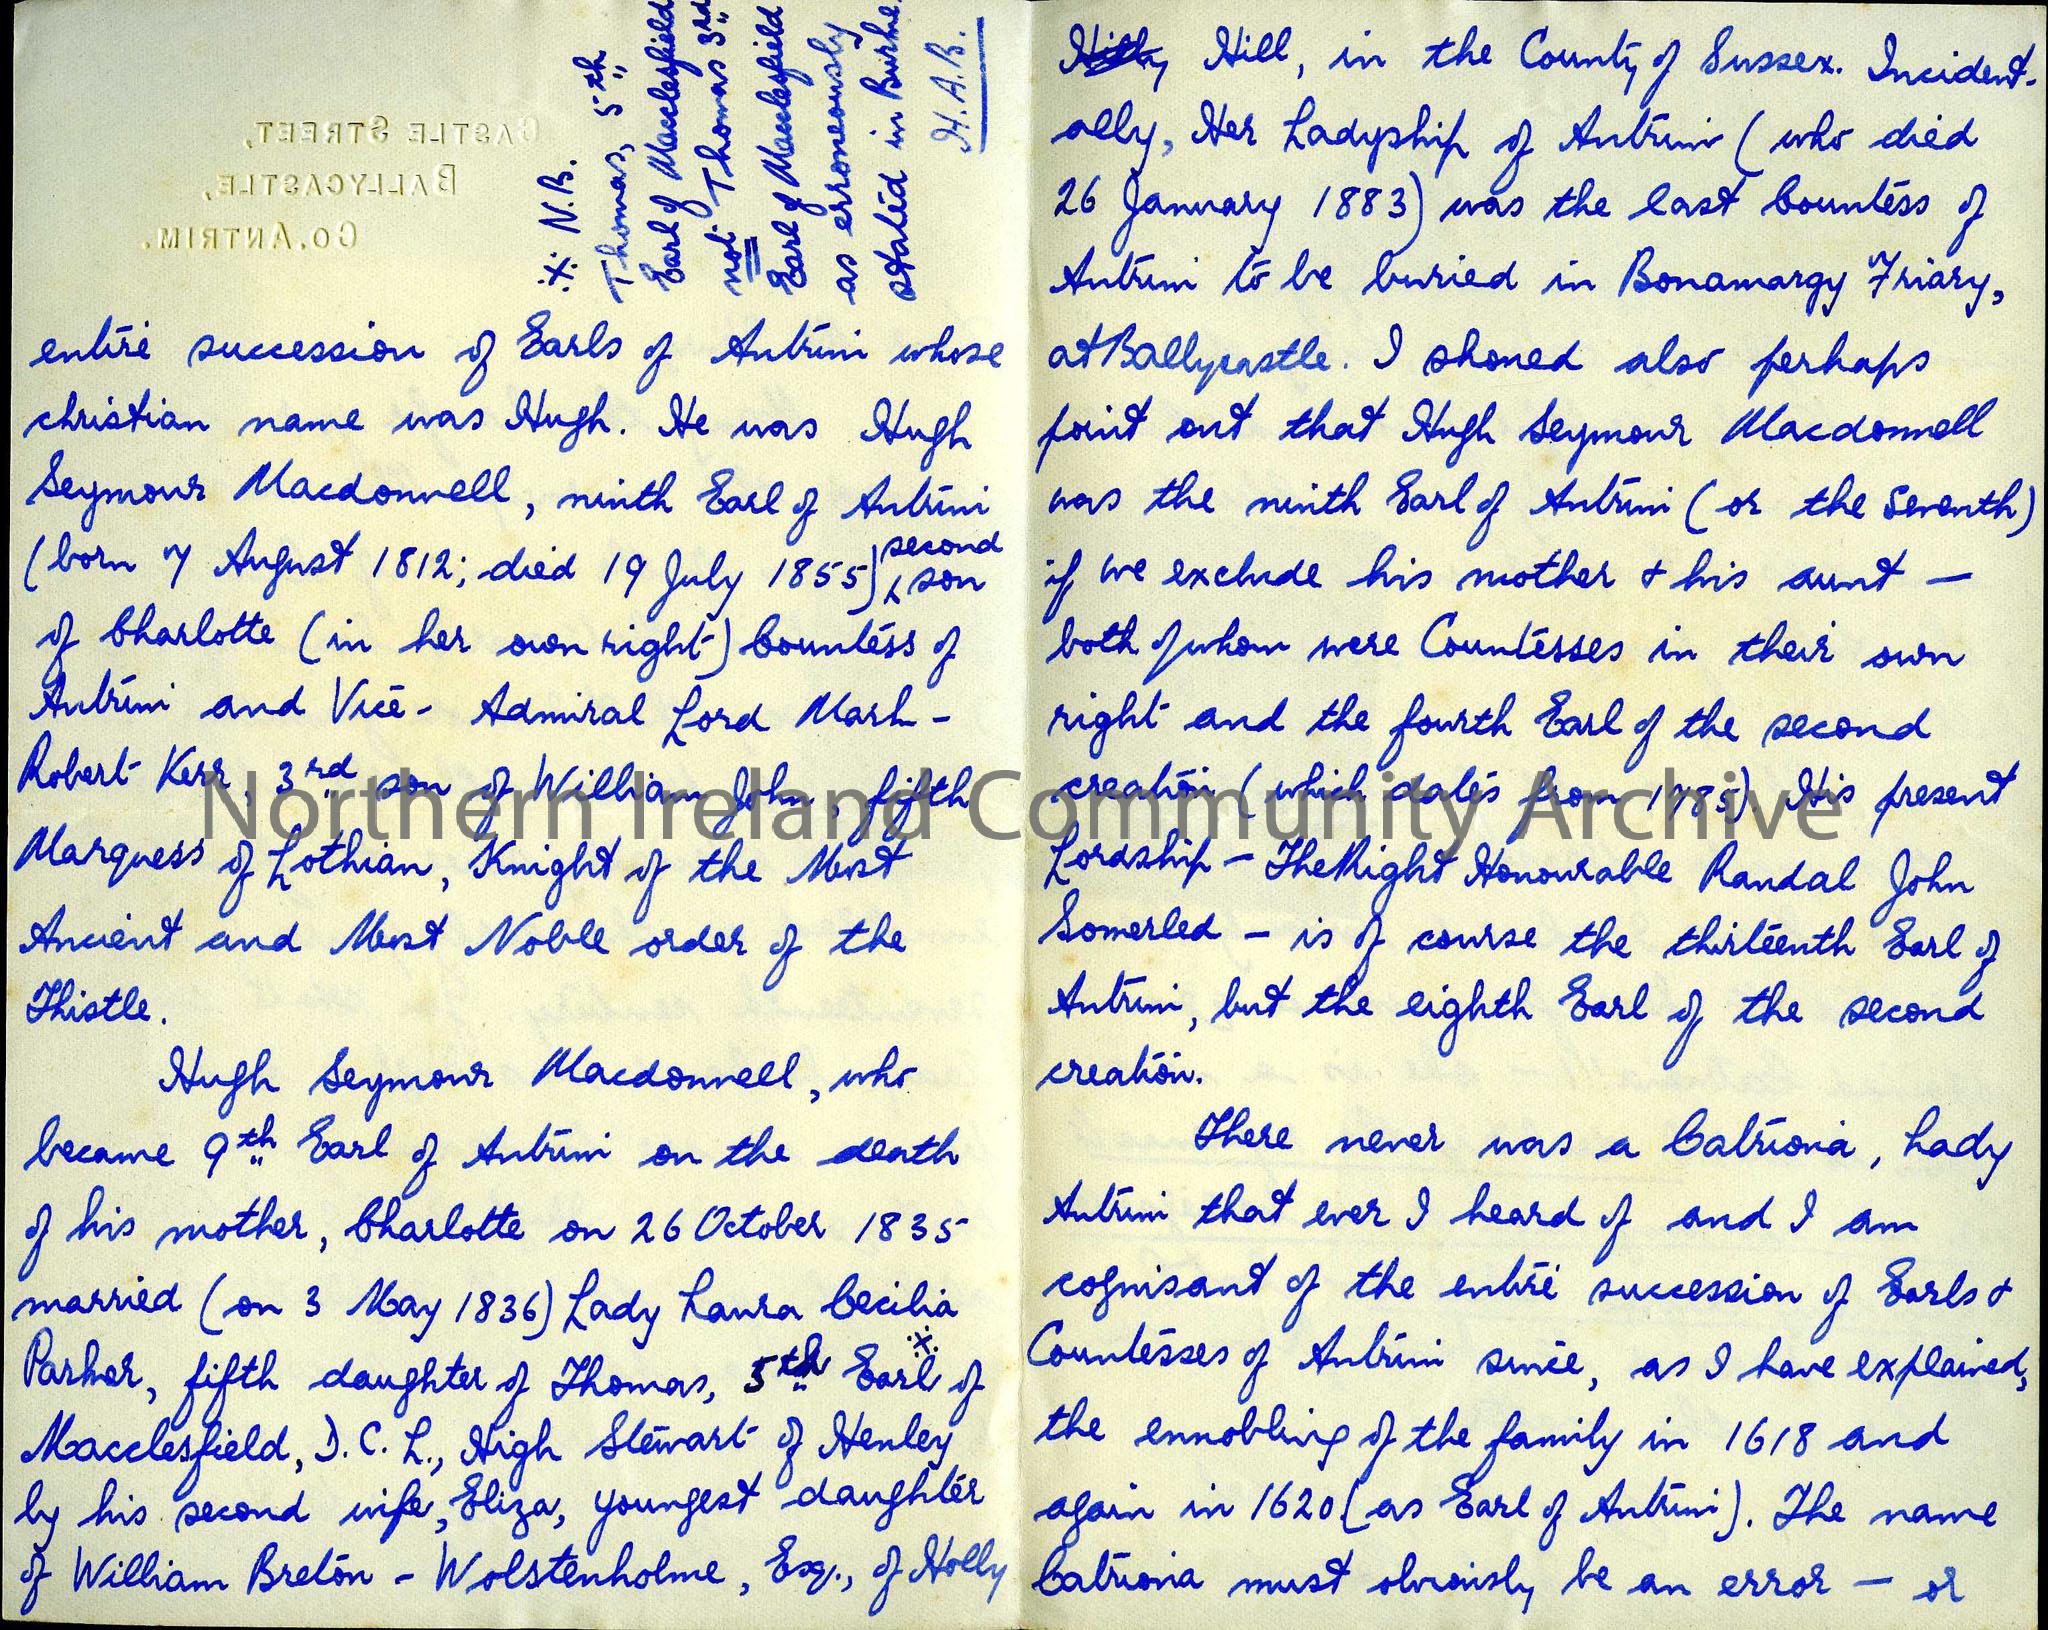 CASTLE STREET,
BALLYCASTLE,
CO. ANTRIM.
※ N.B.
Thomas, 5th
Earl of Macclesfield
not Thomas 3rd
Earl of Macclesfield
as erroneously
stated in Burke.
H.A.B.
entire succession of Earls of Antrim whose
christian name was Hugh. He was Hugh
Seymour Macdonnell, ninth Earl of Antrim
(born 7 August 1812; died 19 July 1855) second son
of Charlotte (in her own right) Countess of
Antrim and Vice- Admiral Lord Mark-
Robert Kerr, 3rd son of William John, fifth
Marquess of Lothian, Knight of the Most
Ancient and Most Noble order of the
Thistle.
Hugh Seymour Macdonnell, who
became 9th Earl of Antrim on the death
of his mother, Charlotte on 26 October 1835
married (on 3 May 1836) Lady Laura Cecilia
Parker, fifth daughter of Thomas, 5th Earl ※ of
Macclesfield, D.C.L., High Stewart of Henley
by his second wife, Eliza, youngest daughter
of William Breton - Wolstenholme, Esq., of Holly
Hill, in the County of Sussex. Incident-
ally, Her Ladyship of Antrim (who died
26 January 1883) was the last Countess of
Antrim to be buried in Bonamargy Friary,
at Ballycastle. I shoned also perhaps
point out that Hugh Seymour Macdonnell
was the ninth Earl of Antrim (or the Seventh)
if we exclude his mother & his aunt —
both of whom were Countesses in their own
right and the fourth Earl of the second
creation (which dates from 1785). His present
Lordship - The Right Honourable Randal John
Somerled - is of course the thirteenth Earl of
Antrim, but the eighth Earl of the second
creation.
There never was a Catriona, Lady
Antrim that ever I heard of and I am
cognisant of the entire succession of Earls &
Countesses of Antrim since, as I have explained,
the ennobling of the family in 1618 and
again in 1620 (as Earl of Antrim). The name
Catriona must obviously be an error — or
Northern Ireland Community Archive